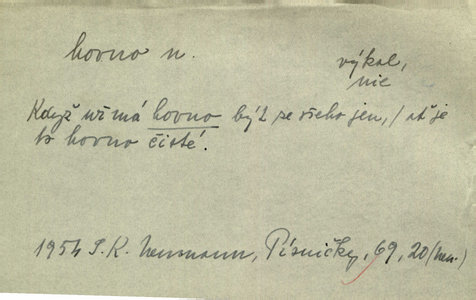 hovno n.
výkal,
nic
Když už má hovno být ze všeho jen, / ať je
to hovno čisté.
1954 S. K. Neumann, Písničky, 69, 20